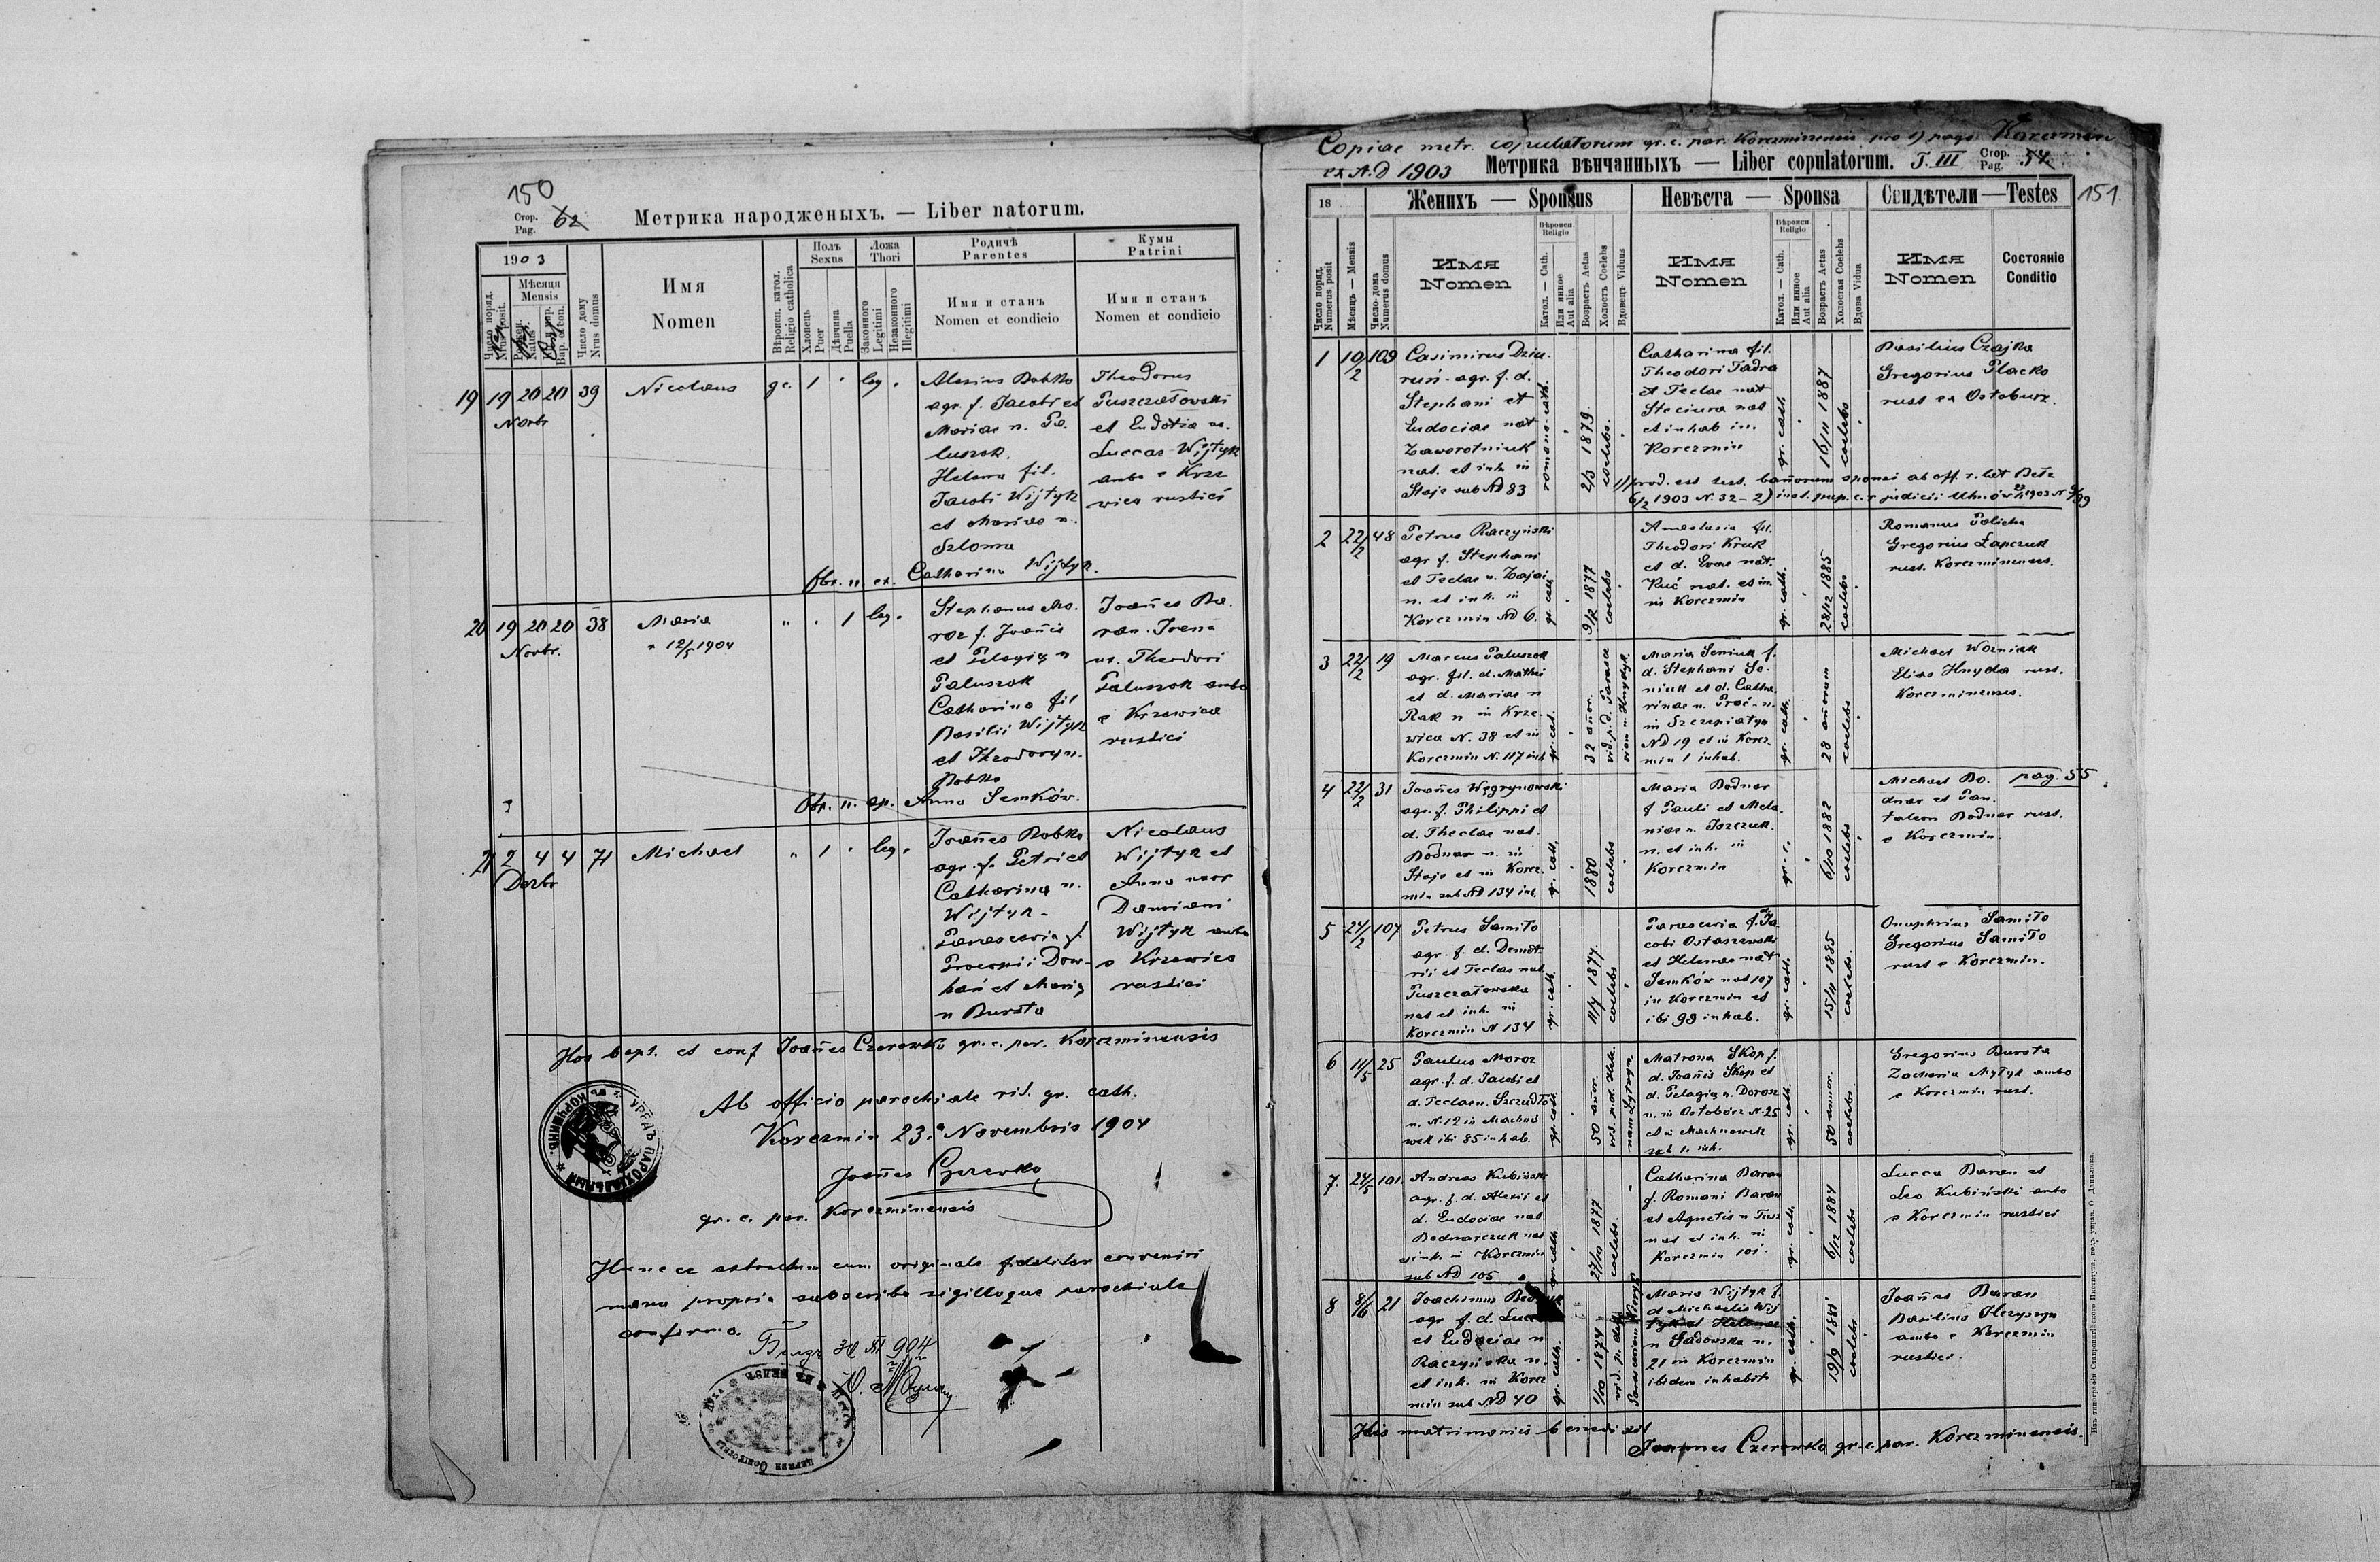 150
Стор. Pag. 62
Метрика народженыхъ. — Liber natorum.
1903
Число поряд. Nrus posit.
Мѣсяця Mensis
Число дому Nrus domus
Имя
Nomen
Вѣроисп. катол. Religio catholica
Полъ Sexus
Хлопець Puer
Дѣвчина Puella
Ложа Thori
Законного Legitimi
Незаконного Illegitimi
Родичѣ Parentes
Имя и станъ
Nomen et condicio
Кумы Patrini
Имя и станъ
Nomen et condicio
19 19 20 20 39 Nicolaus gc. 1 leg.
Novbr
Alexius Bobko
agr. f. Jacobi et
Mariae n. Pa
luszok.
Helena fil.
Jacobi Wijtyk
et Mariae n.
Szloma
Theodorus
Puszczałowski
et Eudotia ux.
Luccae Wijtyk
ambo e Krze
wica rustici
Obs. n. ex. Catharina Wijtyk.
20 19 20 20 38 Maria " 1 leg.
Novbr. 12/5 1904
Stephanus Mo.
roz f. Joannis
et Pelagiy n
Paluszok
Catharina fil
Basilii Wijtyk
et Theodory n.
Bobko
Joannes Ba.
ran. Irena
ux. Theodori
Paluszok ambo
e Krzewica
rustici
Obs. n. ap. Anna Semków.
21 2 4 4 71 Michael " 1 leg.
Dezbr
Joannes Bobko
agr. f. Petri et
Catharina n.
Wijtyk -
Parascevia f.
Procopii Dow-
hań et Mariy
n Bursta
Nicolaus
Wijtyk et
Anna uxor
Damiani
Wijtyk ambo
e Krzewica
rustici
Hos bapt. et conf Joannes Czerewko gr. c. par. Korczminensis
Ab officio parochiale rit. gr. cath.
Korczmin 23. Novembris 1904
Joannes Czerewko
gr. c. par. Korczminensis
Hunc ce extractum cum originale fideliter convenire
manu propria subscribo sigilloque parochiale
confirmo.
904
Copiae metr. copulatorum gr. c. par. Korczminensis pro 1) pago Korczmin
ex A.D 1903
Метрика вѣнчанныхъ — Liber copulatorum. T. III Стор. Pag. 54
151
18
Женихъ — Sponsus
Невѣста — Sponsa
Свидѣтели — Testes
Число поряд. Numerus posit
Мѣсяць — Mensis
Число дома Numerus domus
Имя Nomen
Вѣроисп. Religio
Катол. — Cath.
Или инное Aut alia
Возрастъ Aetas
Холость Coelebs
Вдовець Viduus
Имя Nomen
Вѣроисп Religio
Катол. — Cath.
Или инное Aut alia
Возрастъ Aetas
Холостая Coelebs
Вдова Vidua
Имя Nomen
Состояніе Conditio
1 10/2 109
Casimirus Dziu-
ruń - agr. f. d.
Stephani et
Eudociae nat
Zaworotniuk
nat. et inh in
Staje sub Nd 83
romano-cath.
2/3 1879
coelebs.
Catharina fil.
Theodori Fadra
et Teclae nat
Steciura nat
et inhab in.
Korczmin
gr. cath.
16/11 1887
coelebs
Basilius Czajka
Gregorius Placko
rust ex Ostobuz.
1) prod. est test. bannorum sponsi ab off. r. lat Bełz
6/2 1903 N. 32 - 2)
2 22/2 48
Petrus Raczyński
agr f. Stephani
et Teclae n. Zajac
n. et inh. in
Korczmin Nd 6.
gr. cath
9/12 1877
coelebs
Anastasia fil.
Theodori Kruk
et d. Evae nat.
Kuć nat. et in.
in Korczmin
gr. cath.
28/12 1885
coelebs
Romanus Palicha
Gregorius Łapczuk
rust. Korczminenses.
3 22/2 19
Marcus Paluszok
agr. fil. d. Mathei
et d. Mariae n
Rak n in Krze.
wica N. 38 et in
Korczmin N. 117 inh
gr. cat.
32 annor.
vid. p. d. Parasce
viam n Hnydyk.
Maria Seniuk f.
d. Stephani Se-
niuk et d. Catha-
rinae n. Proć - n.
in Szczepiatyn
Nd 19 et in Korcz-
min 1 inhab.
gr. cath.
28 annorum
coelebs
Michael Wozniak
Elias Hnyda rust.
Korczminenses.
4 22/2 31
Joannes Węgrynowski
agr. f. Philippi et
d. Theclae nat.
Bodnar n. in
Staje et in Korcz.
min sub Nd 134 inh.
gr. cath.
1880
coelebs
Maria Bodnar
f Pauli et Mela
niae n. Iszczuk.
n. et inh. in
Korczmin
gr. c.
6/10 1882
coelebs
Michael Bo.
dnar et Pan.
taleon Bodnar rust.
e Korczmin.
pag. 55
5 24/2 107
Petrus Samiło
agr. f. d. Demet
rii et Teclae nat
Puszczałowska
nat et inh. in
Korczmin N 134
gr. cath.
11/7 1877.
coelebs
Parascevia f. Ja
cobi Ostaszewski
et Helenae nat
Semków nat 107
in Korczmin et
ibi 98 inhab.
gr. cath.
15/11 1885
coelebs.
Onuphrius Samiło
Gregorius Samiło
rust e Korczmin.
6 11/5 25
Paulus Moroz
agr. f. d. Jacobi et
d. Teclae n. Szczudło
n. N. 12 in Machno
wek ibi 85 inhab.
gr. cath.
50 annor.
vid. p. d. Hele.
nam Lytwyn
Matrona Skop f.
d. Joannis Skop et
d. Pelagiy n. Dorosz
n. in Ostobórz N. 25
et in Machnowek
sub 1. inh.
gr. cath.
50 annor.
coelebs.
Gregorius Bursta
Zacharia Mytyk ambo
e Korczmin rust.
7. 24/5 101.
Andreas Kubiński
agr. f. d. Alexii et
d. Eudociae nat
Bodnarczuk nat
inh. in Korczmin
sub Nd 105
gr. cath.
27/10 1877
coelebs.
Catharina Baran
f. Romani Baran
et Agnetis n Tusz
nat et inh. in
Korczmin 101.
gr. cath.
6/12 1884
coelebs
Lucca Baran et
Leo Kubiński ambo
e Korczmin rustici
8 8/6 21
Joachimus
agr f. d. Luc
et Eudociae n
Raczyńska n.
et inh. in Korcz
min sub Nd 40
gr. cath.
1/10 1874
Maria Wijtyk f.
d Michaelis Wij
tyk et Helenae
n Sadowska n.
21 in Korczmin
ibidem inhabit
gr. cath.
19/9 1881
coelebs
Joannes Baran
Basilius
ambo e Korczmin
rustici.
His matrimoniis benedixit
Joannes Czerewko gr. c. par. Korczminensis.